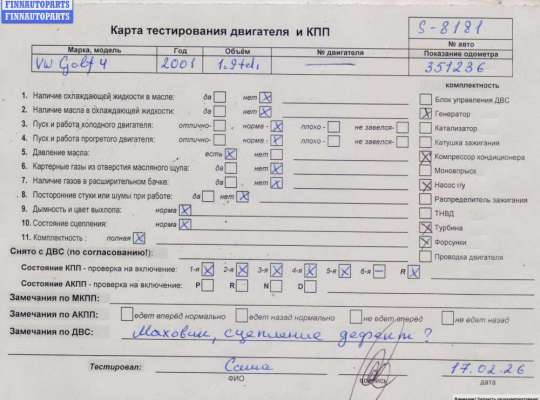 FINNAUTOPARTS
FINNAUTOPARTS
Карта тестирования двигателя и КПП
S-8181
№ авто
Марка, модель Год Объём № двигателя Показание одометра
VW Golf 4 2001 1.9tdi 351236
комплектность
1. Наличие охлаждающей жидкости в масле: да нет X
Блок управления ДВС
2. Наличие масла в охлаждающей жидкости: да нет X
X Генератор
3. Пуск и работа холодного двигателя: отлично- норма - X плохо - не завелся-
Катализатор
4. Пуск и работа прогретого двигателя: отлично- норма - X плохо - не завелся-
Катушка зажигания
5. Давление масла: есть X нет
X Компрессор кондиционера
6. Картерные газы из отверстия масляного щупа: да нет X
Моновпрыск
7. Наличие газов в расширительном бачке: да нет X
X Насос г/у
8. Посторонние стуки или шумы при работе: да нет X
Распределитель зажигания
9. Дымность и цвет выхлопа: норма X
ТНВД
10. Состояние сцепления: норма X
X Турбина
11. Комплектность : полная X
X Форсунки
Снято с ДВС (по согласованию!):
Проводка двигателя
Состояние КПП - проверка на включение: 1-я X 2-я X 3-я X 4-я X 5-я X 6-я — R X
Состояние АКПП - проверка на включение: P R N D
Замечания по МКПП:
Замечания по АКПП: едет вперёд нормально едет назад нормально не едет вперёд не едет назад
Замечания по ДВС: Маховик, сцепление дефект ?
Тестировал: Саша 17.02.26
ФИО подпись дата